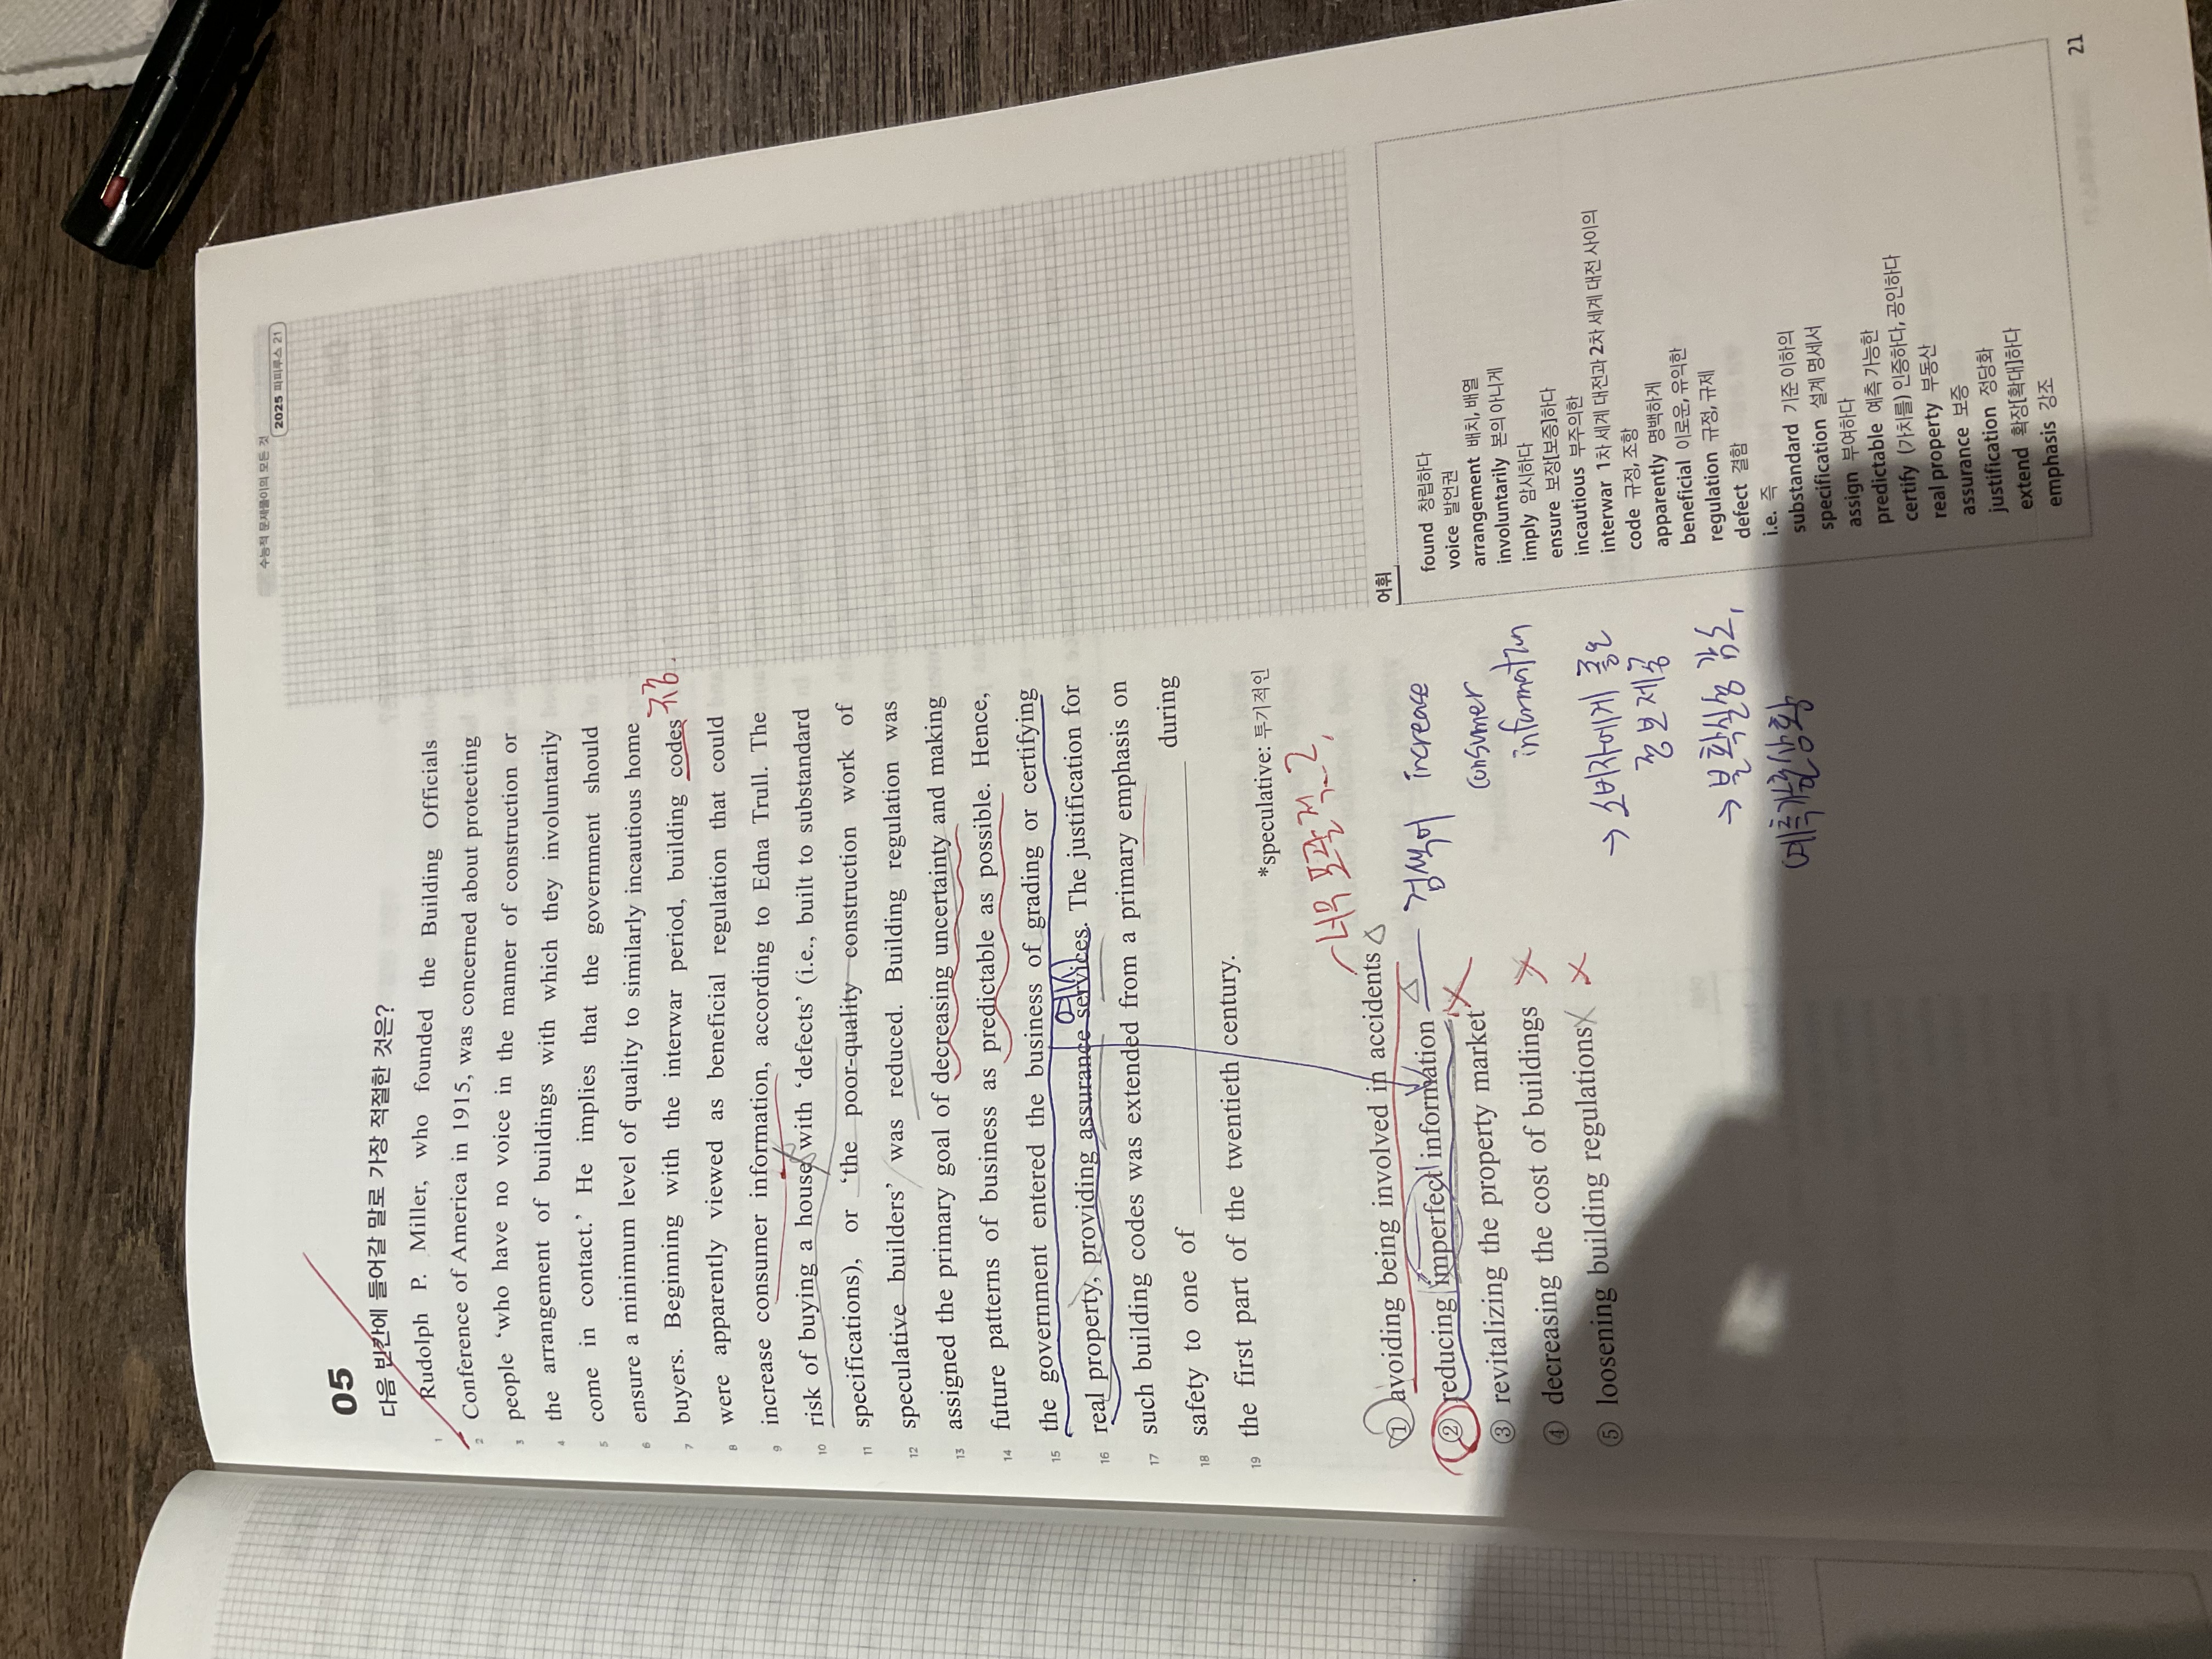 수능적 문제풀이의 모든 것
2025 파피루스 21
05
다음 빈칸에 들어갈 말로 가장 적절한 것은?
1 Rudolph P. Miller, who founded the Building Officials
2 Conference of America in 1915, was concerned about protecting
3 people ‘who have no voice in the manner of construction or
4 the arrangement of buildings with which they involuntarily
5 come in contact.’ He implies that the government should
6 ensure a minimum level of quality to similarly incautious home
7 buyers. Beginning with the interwar period, building codes
규정..
8 were apparently viewed as beneficial regulation that could
9 increase consumer information, according to Edna Trull. The
10 risk of buying a house with ‘defects’ (i.e., built to substandard
11 specifications), or ‘the poor-quality construction work of
12 speculative builders’ was reduced. Building regulation was
13 assigned the primary goal of decreasing uncertainty and making
14 future patterns of business as predictable as possible. Hence,
15 the government entered the business of grading or certifying
16 real property, providing assurance services. The justification for
17 such building codes was extended from a primary emphasis on
18 safety to one of ____________ during
19 the first part of the twentieth century.
*speculative: 투기적인
너무 포괄적..2,
① avoiding being involved in accidents △
② reducing imperfect information △
③ revitalizing the property market X
④ decreasing the cost of buildings X
⑤ loosening building regulations X X
increase
consumer
information
→ 소비자에게 좋은
정보 제공
→ 불확실성 감소,
예측가능상황
어휘
found 창립하다
voice 발언권
arrangement 배치, 배열
involuntarily 본의 아니게
imply 암시하다
ensure 보장[보증]하다
incautious 부주의한
interwar 1차 세계 대전과 2차 세계 대전 사이의
code 규정, 조항
apparently 명백하게
beneficial 이로운, 유익한
regulation 규정, 규제
defect 결함
i.e. 즉
substandard 기준 이하의
specification 설계 명세서
assign 부여하다
predictable 예측 가능한
certify (가치를) 인증하다, 공인하다
real property 부동산
assurance 보증
justification 정당화
extend 확장[확대]하다
emphasis 강조
21